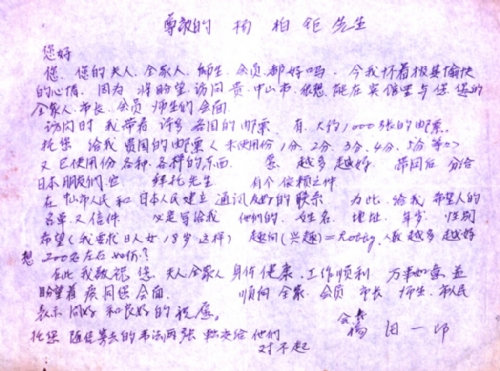 尊敬的 杨 柏 钜 先生
您好
您、您的夫人、全家人、师生、会员、都好吗。今我怀着极其愉快
的心情。因为 将盼望 访问贵·中山市。很想能在宾馆里与您 您的
全家人、市长、会员 师生的会面
访问时 我带着 许多各国的邮票。有 大约1000多张的邮票。
托您 给我 贵国的邮票(未使用份 1分、2分、3分、4分、5分等。)
又 已使用份各种、各样的东西 越多越好。 带回后 分给
日本朋友们 拜托先生 有个依赖之件
在 中山市人民 和 日本人民 建立 通讯友好的联系 为此、给我 希望人的
名单又信件 写给我 他们的、姓名 地址、年岁 性别
希望(我要求 日人女18岁 这样) 趣问(兴趣)= 人数越多越好
想 200名左右 如何?
在此 我敬祝 您 夫人全家人 身体健康、工作顺利 万事如意 并
盼望着 您会面. 顺问 全家、会员 市长 师生、市民
表示问好 和良好的祝愿。
会长 一郎
托您 两张 转交给他们
对不起